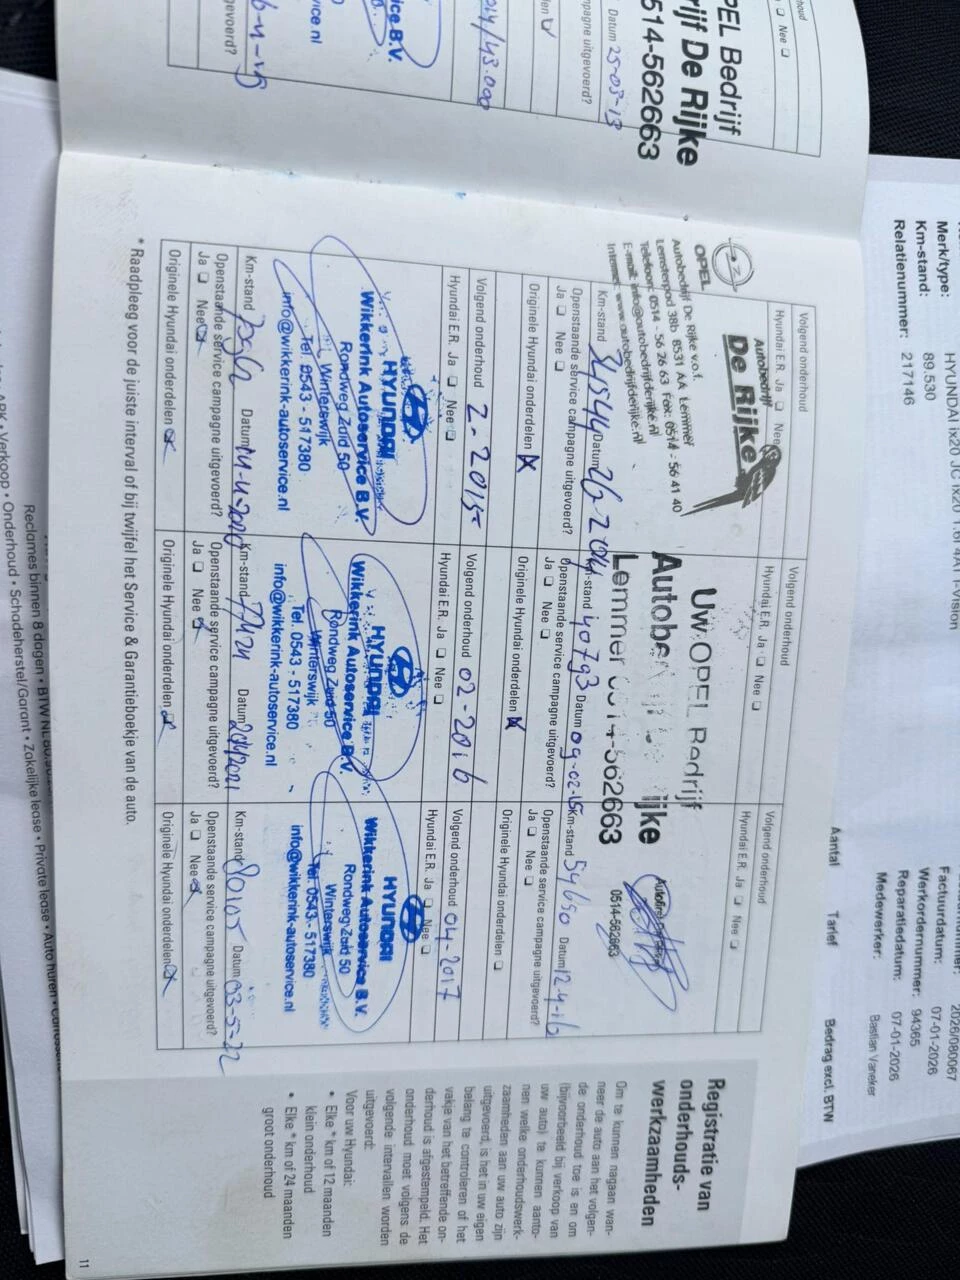 PEL Bedrijf
rijf De Rijke
514-562663
houd
Nee
Datum 25-03-13
mpagne uitgevoerd?
en
014/43.000
ice B.V.
vice.nl
gevoerd?
Registratie van
onderhouds-
werkzaamheden
Om te kunnen nagaan wan-
neer de auto aan het volgen-
de onderhoud toe is en om
(bijvoorbeeld bij verkoop van
uw auto) te kunnen aanto-
nen welke onderhoudswerk-
zaamheden aan uw auto zijn
uitgevoerd, is het in uw eigen
belang te controleren of het
vakje van het betreffende on-
derhoud is afgestempeld. Het
onderhoud moet volgens de
volgende intervallen worden
uitgevoerd:
Voor uw Hyundai:
• Elke * km of 12 maanden
klein onderhoud
• Elke * km of 24 maanden
groot onderhoud
Volgend onderhoud
Hyundai E.R. Ja Nee
Autobedrijf
De Rijke
OPEL
Autobedrijf De Rijke v.o.f.
Lemsterpad 38b 8531 AA Lemmer
Telefoon: 0514 - 56 26 63 Fax: 0514 - 56 41 40
E-mail: info@autobedrijfderijke.nl
Internet: www.autobedrijfderijke.nl
Km-stand 34544 Datum 26-2-2014
Openstaande service campagne uitgevoerd?
Ja Nee
Originele Hyundai onderdelen
Volgend onderhoud 2-2015
Hyundai E.R. Ja Nee
HYUNDAI
Wikkerink Autoservice B.V.
Rondweg Zuid 50
Winterswijk
Tel. 0543 - 517380
info@wikkerink-autoservice.nl
Km-stand Datum
Openstaande service campagne uitgevoerd?
Ja Nee
Originele Hyundai onderdelen
Volgend onderhoud
Hyundai E.R. Ja Nee
Uw OPEL Bedrijf
Autobe ijke
Lemmer 0514-562663
Km-stand 40793 Datum 09-02-15
Openstaande service campagne uitgevoerd?
Ja Nee
Originele Hyundai onderdelen
Volgend onderhoud 02-2016
Hyundai E.R. Ja Nee
HYUNDAI
Wikkerink Autoservice B.V.
Rondweg Zuid 50
Winterswijk
Tel. 0543 - 517380
info@wikkerink-autoservice.nl
Km-stand Datum
Openstaande service campagne uitgevoerd?
Ja Nee
Originele Hyundai onderdelen
Volgend onderhoud
Hyundai E.R. Ja Nee
0514-562663
Km-stand 54650 Datum 12-4-16
Openstaande service campagne uitgevoerd?
Ja Nee
Originele Hyundai onderdelen
Volgend onderhoud 04-2017
Hyundai E.R. Ja Nee
HYUNDAI
Wikkerink Autoservice B.V.
Rondweg Zuid 50
Winterswijk
Tel. 0543 - 517380
info@wikkerink-autoservice.nl
Km-stand 80105 Datum 03-5-22
Openstaande service campagne uitgevoerd?
Ja Nee
Originele Hyundai onderdelen
* Raadpleeg voor de juiste interval of bij twijfel het Service & Garantieboekje van de auto.
11
Merk/type: HYUNDAI ix20
Km-stand: 89.530
Relatienummer: 217146
2026/080067
Factuurdatum: 07-01-2026
Werkordernummer: 94365
Reparatiedatum: 07-01-2026
Medewerker: Bastian Vaneker
Aantal Tarief Bedrag excl. BTW
APK • Verkoop • Onderhoud • Schadeherstel/Garant • Zakelijke lease • Private lease • Auto huren
Reclames binnen 8 dagen • BTW